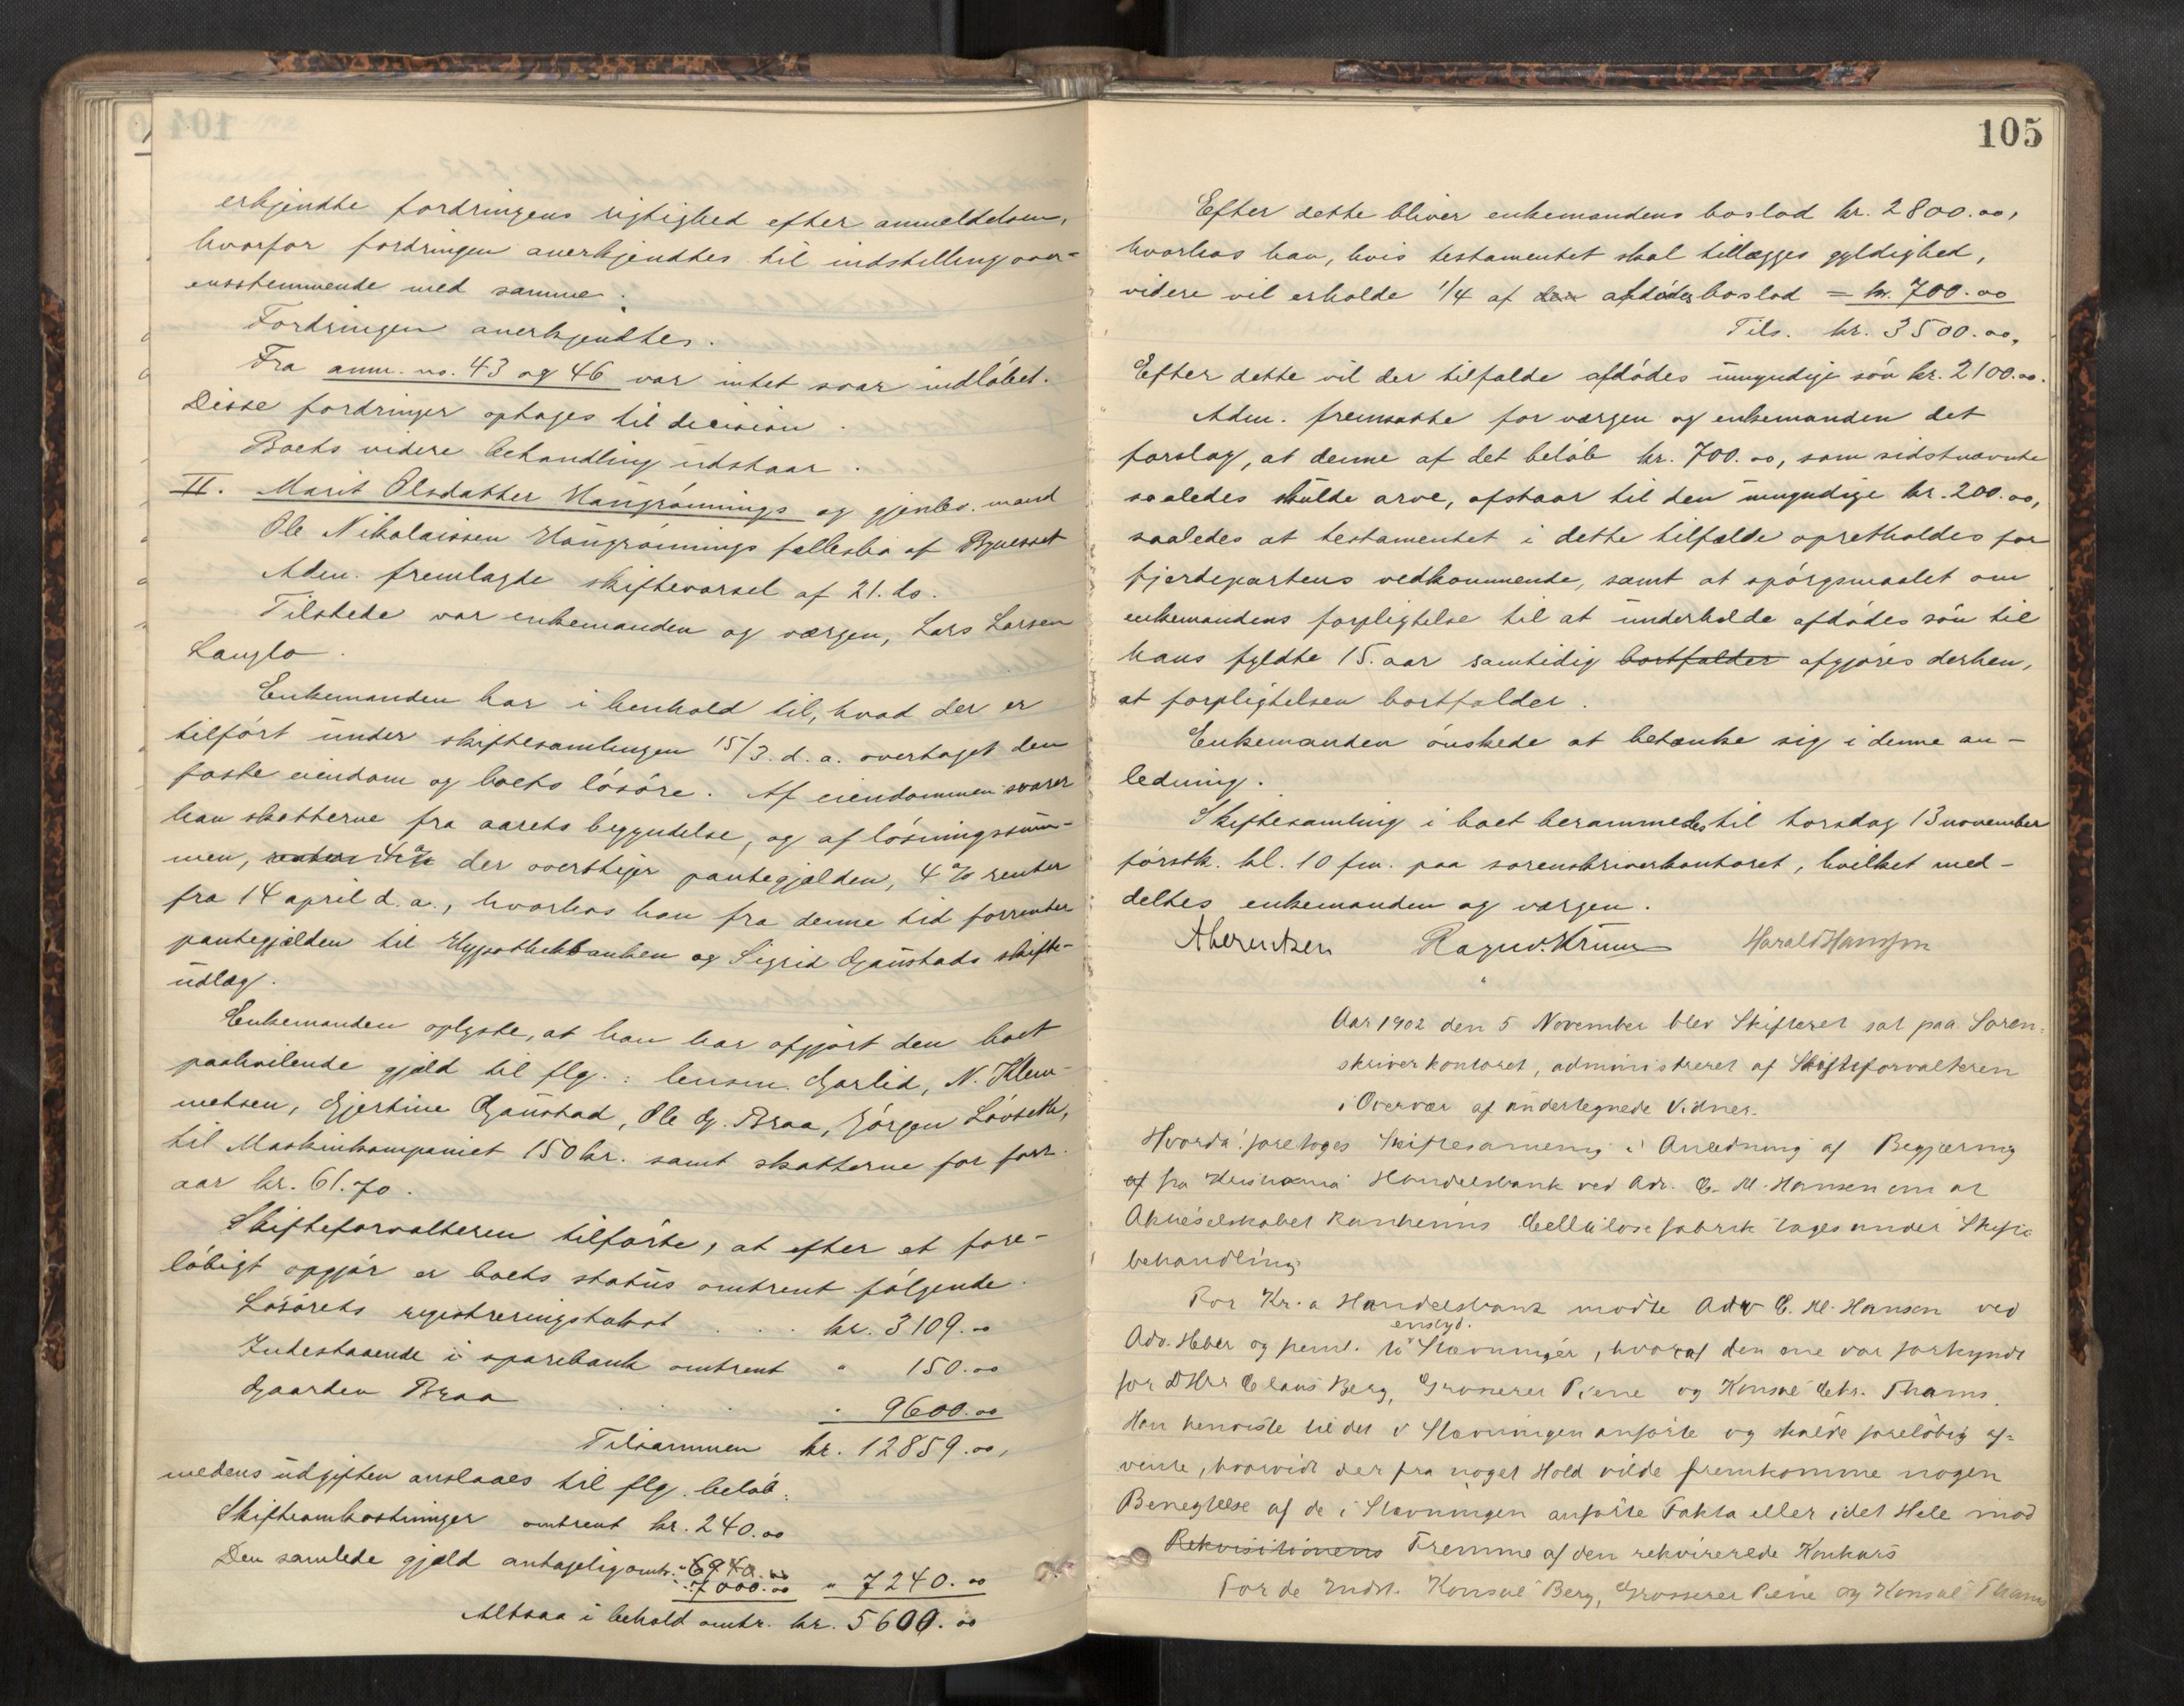 erkjendte fordringens rigtighed efter anmeldelsen,
hvorfor fordringen anerkjendtes til indstilling over-
ensstemmende med samme.
Fordringen anerkjendtes.
Fra anm. no. 43 og 46 var intet svar indløbet.
Disse fordringer optages til decision.
Boets videre behandling udstaar.
II. Marit Olsdatter Haugrønnings og gjenlev. mand
Ole Nikolaissen Haugrønnings fællesbo af Bynesset
Adm. fremlagde skiftevarsel af 21. ds.
Tilstede var enkemanden og værgen, Lars Larsen
Langlo.
Enkemanden har i henhold til, hvad der er
tilført under skiftesamlingen 15/3. d. a. overtaget den
faste eiendom og boets løsøre. Af eiendommen svarer
han skatterne fra aarets begyndelse, og af løsningssum-
men, renter 4% der overstiger pantegjælden, 4% renter
fra 14 april d. a., hvorhos han fra denne tid forrenter
pantegjælden til Hypothekbanken og Sigrid Gaustads skifte-
udlæg.
Enkemanden oplyste, at han har afgjort den boet
paahvilende gjæld til flg.: lensm. Garlid, N. Klem-
metsen, Gjertine Gaustad, Ole G. Braa, Jørgen Løvseth,
til Maskinkompaniet 150 kr. samt skatterne for forr.
aar kr. 61.70.
Skifteforvalteren tilførte, at efter et fore-
løbigt opgjør er boets status omtrent følgende.
Løsørets registreringstakst . . . kr. 3109.00
Indestaaende i sparebank omtrent " 150.00
Gaarden Braa . . . " 9600.00
Tilsammen kr. 12859.00,
medens udgiften anslaaes til flg. beløb:
Skifteomkostninger omtrent kr. 240.00
Den samlede gjæld antagelig omtr. " 6940.00
" 7000.00 " 7240.00
Altsaa i behold omtr. kr. 5600.00
105
Efter dette bliver enkemandens boslod kr. 2800.00,
hvorhos han, hvis testamentet skal tillægges gyldighed,
videre vil erholde 1/4 af den afdødes boslod = kr. 700.00
Tils. kr. 3500.00,
Efter dette vil der tilfalde afdødes umyndige søn kr. 2100.00.
Adm. fremsatte for værgen og enkemanden det
forslag, at denne af det beløb kr. 700.00, som sidstnævnte
saaledes skulde arve, afstaar til den umyndige kr. 200.00,
saaledes at testamentet i dette tilfælde opretholdes for
fjerdepartens vedkommende, samt at spørgsmaalet om
enkemandens forpligtelse til at underholde afdødes søn til
hans fyldte 15. aar samtidig bortfalder afgjøres derhen,
at forpligtelsen bortfalder.
Enkemanden ønskede at betænke sig i denne an-
ledning.
Skiftesamling i boet berammedes til torsdag 13 november
førstk. kl. 10 fm. paa sorenskriverkontoret, hvilket med-
deltes enkemanden og værgen.
Aberentzen Ragnv. Krum Harald Hansson
Aar 1902 den 5 November blev Skifteret sat paa Soren-
skriverkontoret, administreret af Skifteforvalteren
i Overvær af undertegnede Vidner.
Hvorda! foretoges Skiftesamling i Anledning af Begjæring
af fra Kristiania Handelsbank ved Adv. C. M. Hansen om at
Aktieselskabet Ranheims Cellulosefabrik tages under Skifte
behandling
For Kr.a Handelsbank mødte Adv C. M. Hansen ved
Adv. Heber og freml. to enslyd. Stævninger, hvoraf den ene var forkyndt
for DHrr Claus Berg, Grosserer Piene og Konsul Chr. Thams.
Han henviste til det i Stævningen anførte og skulde foreløbig af-
vente, hvorvidt der fra noget Hold vilde fremkomme nogen
Benegtelse af de i Stævningen anførte Fakta eller i det Hele mod
Rekvisitionens Fremme af den rekvirerede Konkurs
For de Indst. Konsul Berg, Grosserer Piene og Konsul Thams